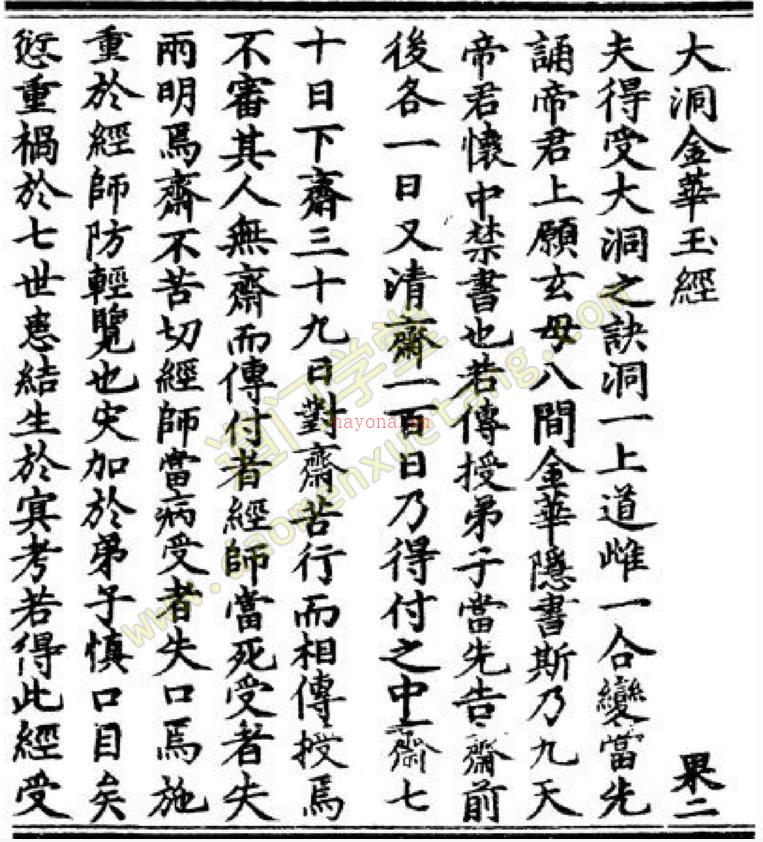 大洞金華玉經
果二
夫得受大洞之訣洞一上道雌一合變當先
誦帝君上願玄母八間金華隱書斯乃九天
帝君懷中禁書也若傳授弟子當先告齋前
後各一日又清齋一百日乃得付之中齋七
十日下齋三十九日對齋苦行而相傳授焉
不審其人無齋而傳付者經師當死受者失
兩明焉齋不苦切經師當病受者失口焉施
重於經師防輕覽也灾加於弟子慎口目矣
愆重禍於七世恚結生於寘考若得此經受
道门学堂
www.daomenxuetang.com
nayona.cn